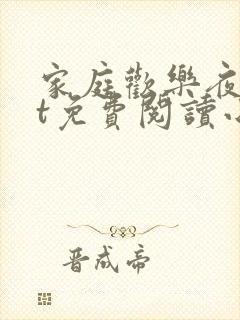 家庭歡樂夜
t免費閱讀小
晋成帝